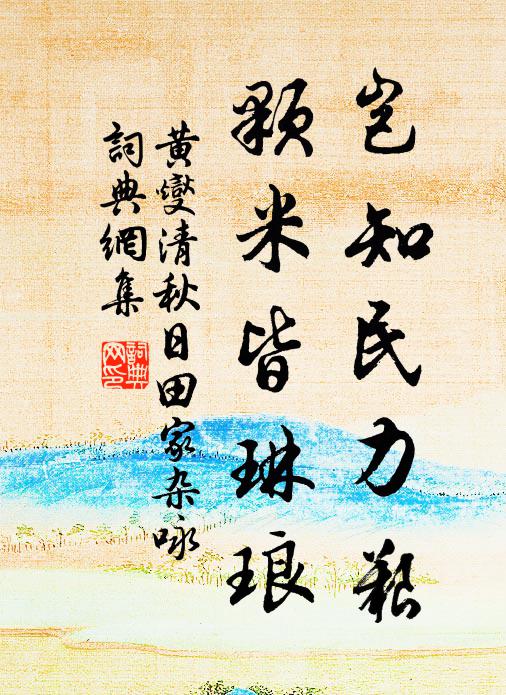 岂知民力艱
顆米皆琳琅
黄燮清秋日田家杂咏
詞典網集
詞典
网印